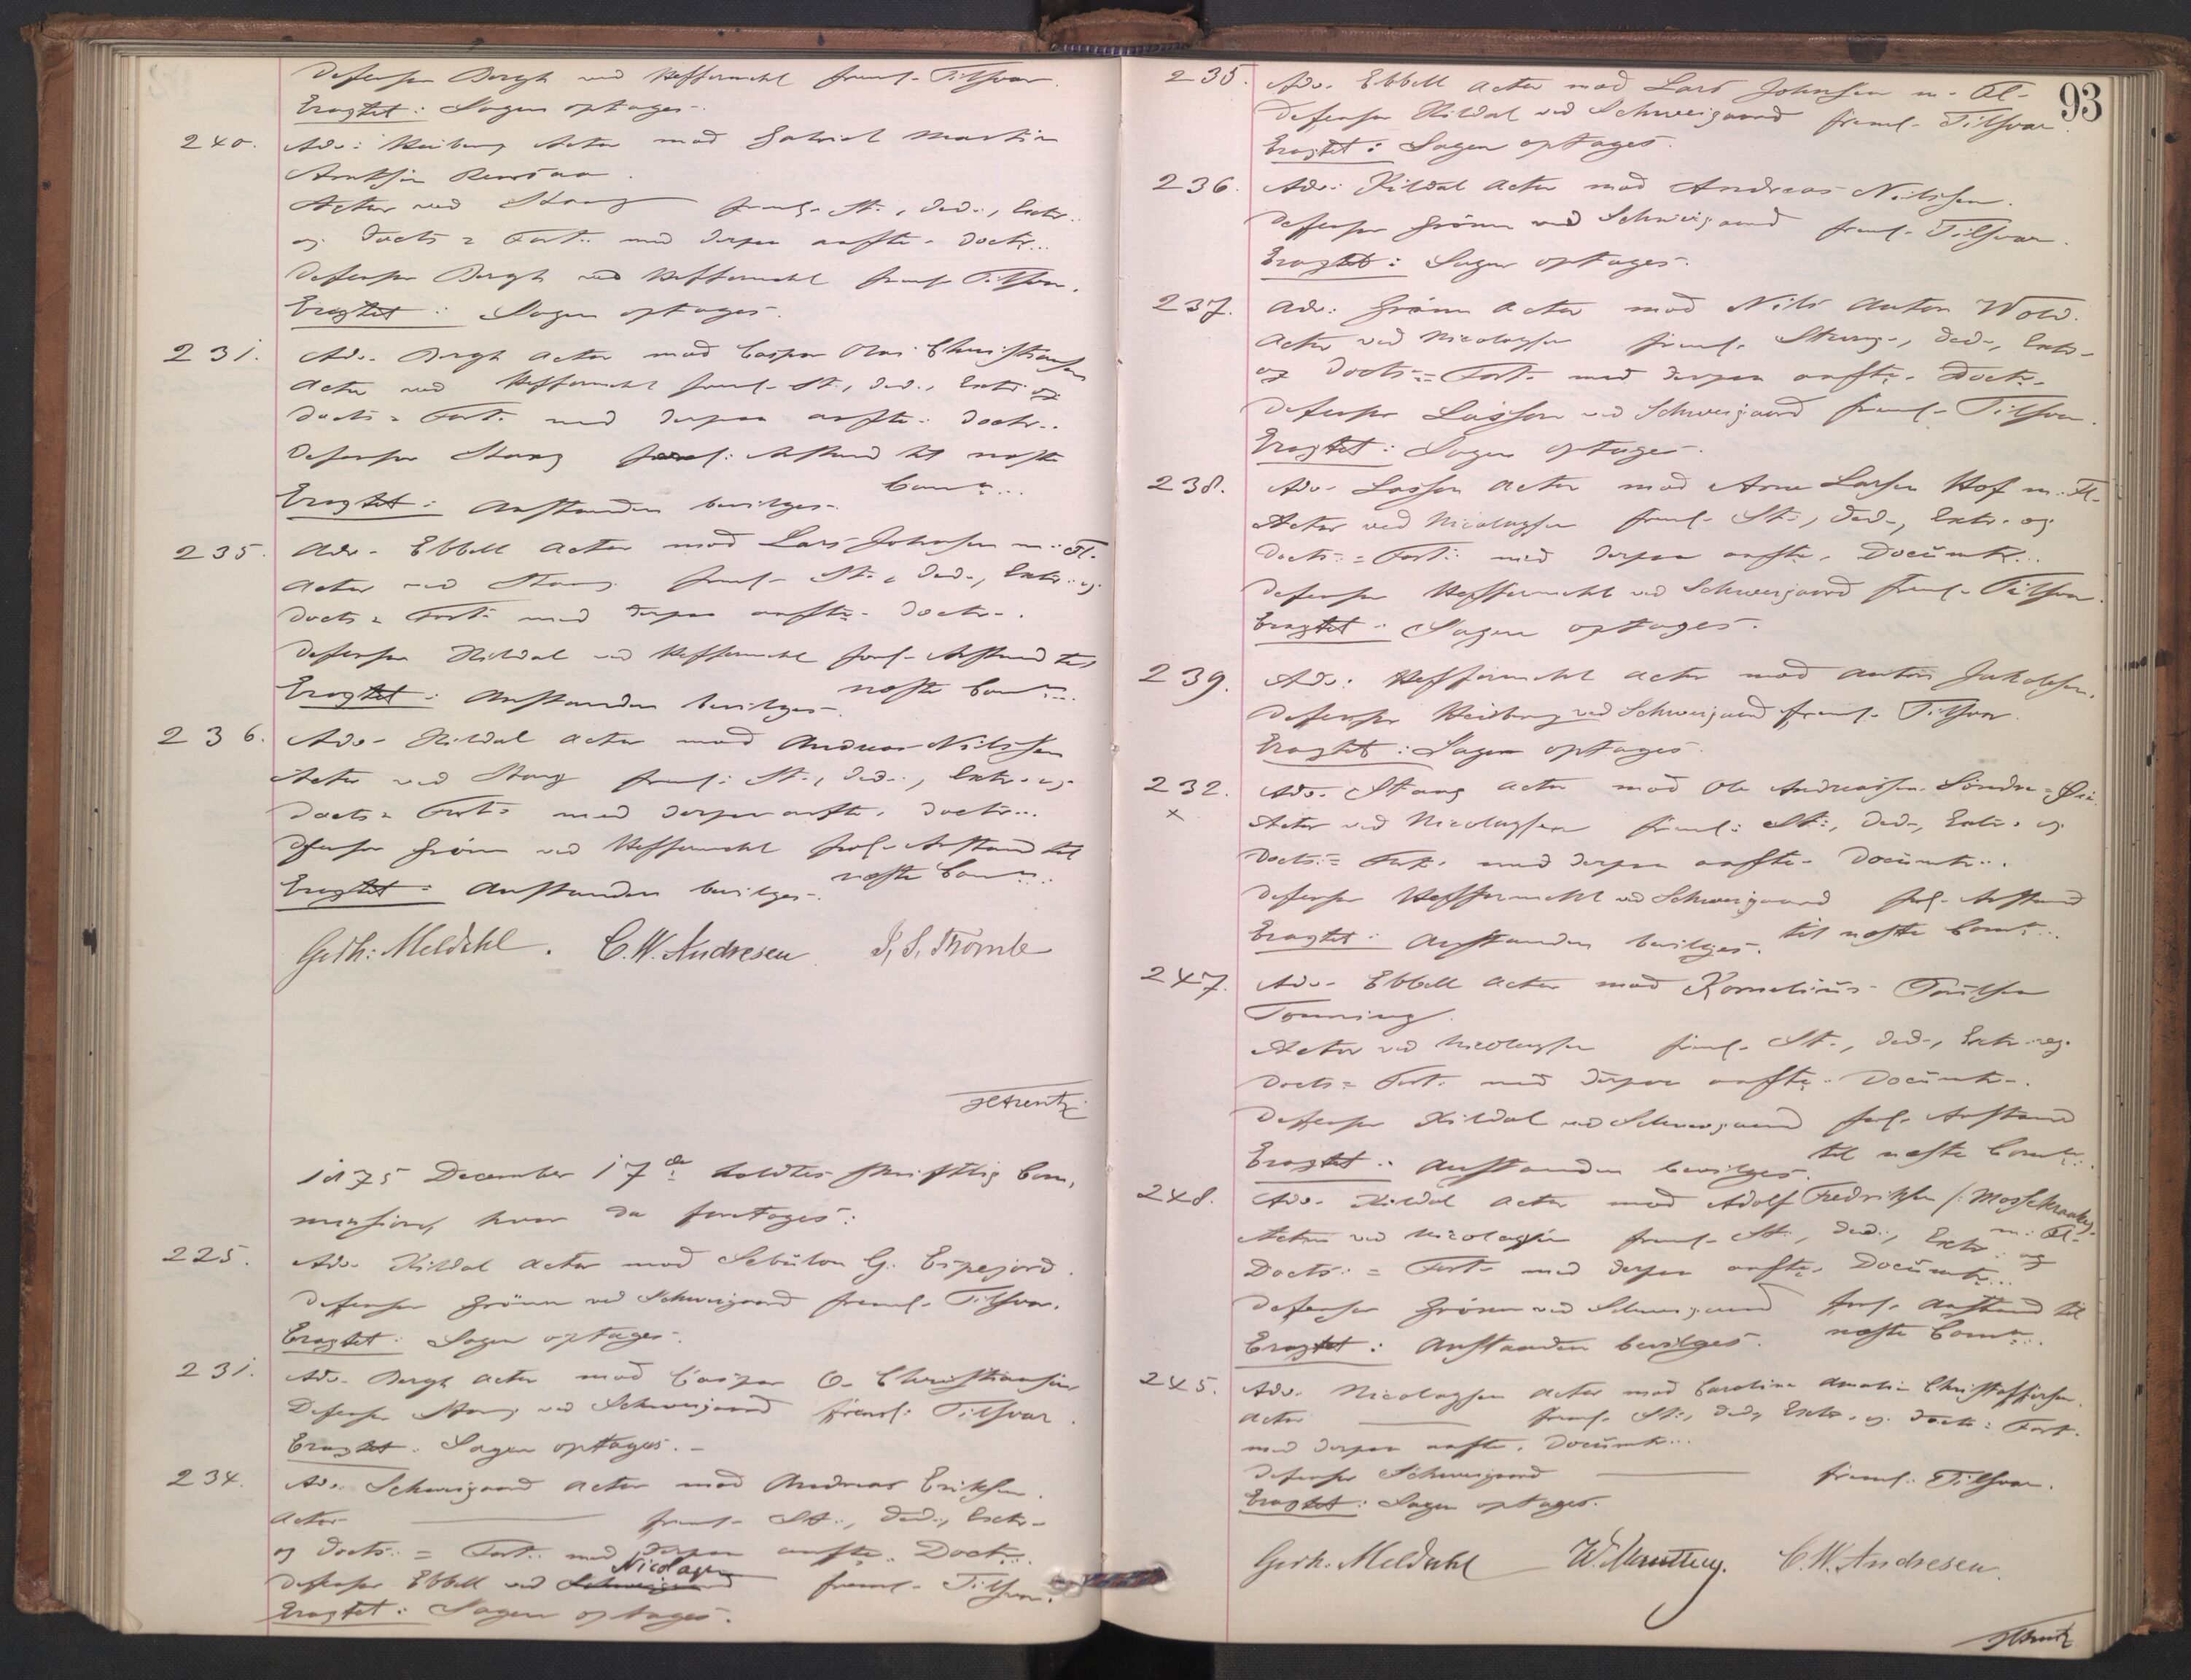 Defensor Bergh ved Heffermehl freml- Tilsvar.
Eragtet: Sagen optages-.
240. Adv: Heiberg Actor mod Gabriel Martin
Arntsen
Actor ved Stang freml- St., Ded., Extr..
og Docts = Fort.. med derpaa anfte- Doctr...
Defensor Bergh ved Heffermehl freml- Tilsvar.
Eragtet: Sagen optages.
231. Adv. Bergh Actor mod Caspar Olai Christiansen
Actor ved Heffermehl freml- St., Ded., Extr og
Docts = Fort. med derpaa anfte: Doctr..
Defensor Stang forl: Anstand til næste
Comn...
Eragtet: Anstanden bevilges-.
235. Adv- Ebbell Actor mod Lars Johnsen m: Fl.
Actor ved Stang freml- St., Ded-, Extr. og
Docts = Fort- med derpaa anfte- Doctr-.
Defensor Kildal ved Heffermehl forl- Anstand til
næste Comn...
Eragtet: Anstanden bevilges-.
236. Adv- Kildal Actor mod Andreas Nilssen
Actor ved Stang freml: St., Ded-, Extr- og
Docts = Fort- med derpaa anfte. Doctr...
Defensor Grönn ved Heffermehl forl- Anstand til
næste Comn...
Eragtet: Anstanden bevilges-.
Gerh: Meldahl. C. W. Andresen J. S. Thomle
HArentz
1875 December 17de holdtes skriftlig Com-
mission, hvor da foretages:
225. Adv- Kildal Actor mod Sebulon G. Espejord.
Defensor Grönn ved Schweigaard freml- Tilsvar.
Eragtet: Sagen optages-.
231. Adv- Bergh Actor mod Caspar O- Christiansen
Defensor Stang ved Schweigaard freml: Tilsvar.
Eragtet: Sagen optages.-
234. Adv. Schweigaard Actor mod Andreas Eriksen.
Actor ——— freml- St., Ded-, Extr-
og Docts: = Fort.. med derpaa anfte.. Doctr..
Nicolaysen
Defensor Ebbell ved Schweigaard freml- Tilsvar.
Eragtet: Sagen optages-.
93
235. Adv. Ebbell Actor mod Lars Johnsen m- Fl-
Defensor Kildal ved Schweigaard freml- Tilsvar.
Eragtet: Sagen optages.
236. Adv: Kildal Actor mod Andreas Nilssen.
Defensor Grönn ved Schweigaard freml- Tilsvar.
Eragtet: Sagen optages-.
237. Adv: Grönn Actor mod Nils Anton Wold.
Actor ved Nicolaysen freml- Stevng-, Ded-, Extr-
og Docts-= Fort- med derpaa anfte- Doctr-
Defensor Lasson ved Schweigaard freml- Tilsvar.
Eragtet: Sagen optages-.
238. Adv- Lasson Actor mod Arne Larsen Hof m. Fl-
Actor ved Nicolaysen freml- St., Ded-, Extr- og
Docts: = Fort: med derpaa anfte. Documtr...
Defensor Heffermehl ved Schweigaard freml- Tilsvar.
Eragtet: Sagen optages-.
239. Adv: Heffermehl Actor mod Anton Jakobsen.
Defensor Heiberg ved Schweigaard freml- Tilsvar.
Eragtet: Sagen optages.
232. Adv. Stang Actor mod Ole Andreassen Söndre =
x
Actor ved Nicolaysen freml: St:, Ded-, Extr- og
Docts: = Fort. med derpaa anfte- Documtr...
Defensor Heffermehl ved Schweigaard forl- Anstand
til næste Comn...
Eragtet: Anstanden bevilges-.
247. Adv- Ebbell Actor mod Kornelius
Tonning.
Actor ved Nicolaysen freml- St., Ded-, Extr- og
Docts = Fort. med derpaa anfte- Documtr-.
Defensor Kildal ved Schweigaard forl- Anstand
til næste Comn...
Eragtet: Anstanden bevilges.
248. Adv- Kildal Actor mod Adolf Fredriksen
m: Fl-
Actor ved Nicolaysen freml- St., Ded., Extr: og
Docts: = Fort- med derpaa anfte. Documtr...
Defensor Grönn ved Schweigaard forl- Anstand til
næste Comn...
Eragtet: Anstanden bevilges.
245. Adv. Nicolaysen Actor mod Caroline Amalie Christoffersen.
Actor ——— freml- St., Ded, Extr- og Docts: Fort-
med derpaa anfte. Documtr...
Defensor Schweigaard ——— freml: Tilsvar.
Eragtet: Sagen optages.
Gerh. Meldahl C. W. Andresen.
HArentz